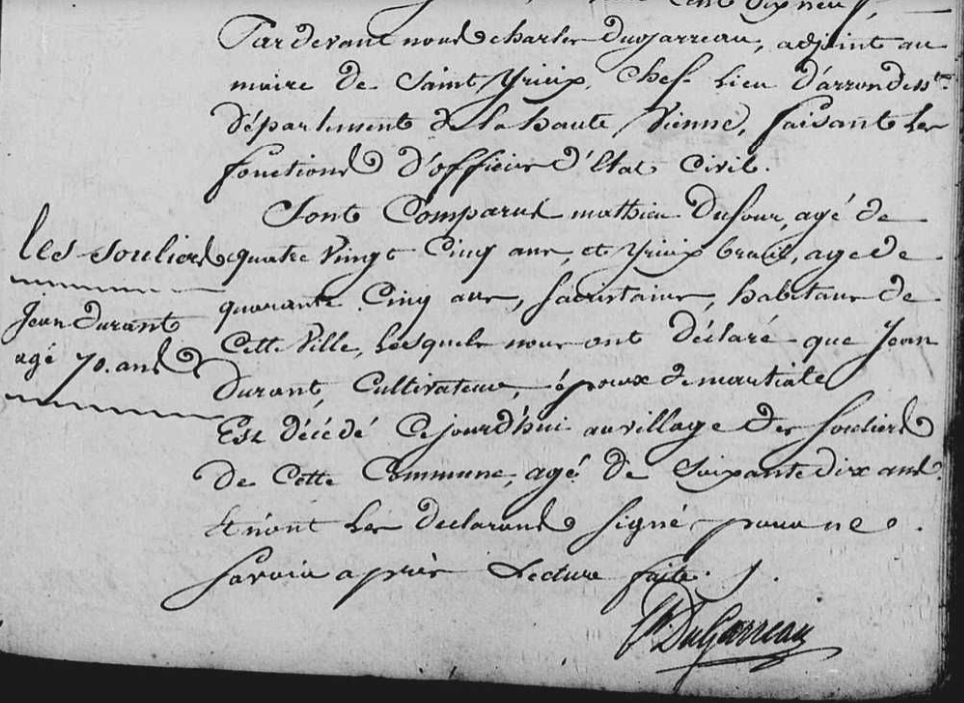 cent dix neuf,
Pardevant nous charles dugarreau, adjoint au
maire de Saint Yrieix, Chef Lieu d'arrondesst.
département de la haute Vienne, faisant les
fonctions d'officier d'Etat Civil.
Sont Comparus mathieu Dufour, agé de
Les souliers
quatre Vingt Cinq ans, et Yrieix agé de
quarante Cinq ans, Sacristains, habitans de
Jean durant
agé 70. ans
Cette Ville, Lesquels nous ont Déclaré que Jean
Durant, Cultivateur, époux de martiale
Est décédé Cejourd'hui au village des Souliers
de Cette Commune, agé de Soixante dix ans.
Et n'ont Les declarans Signé pour ne
Savoir après Lecture faite.
Ch DuGarreau